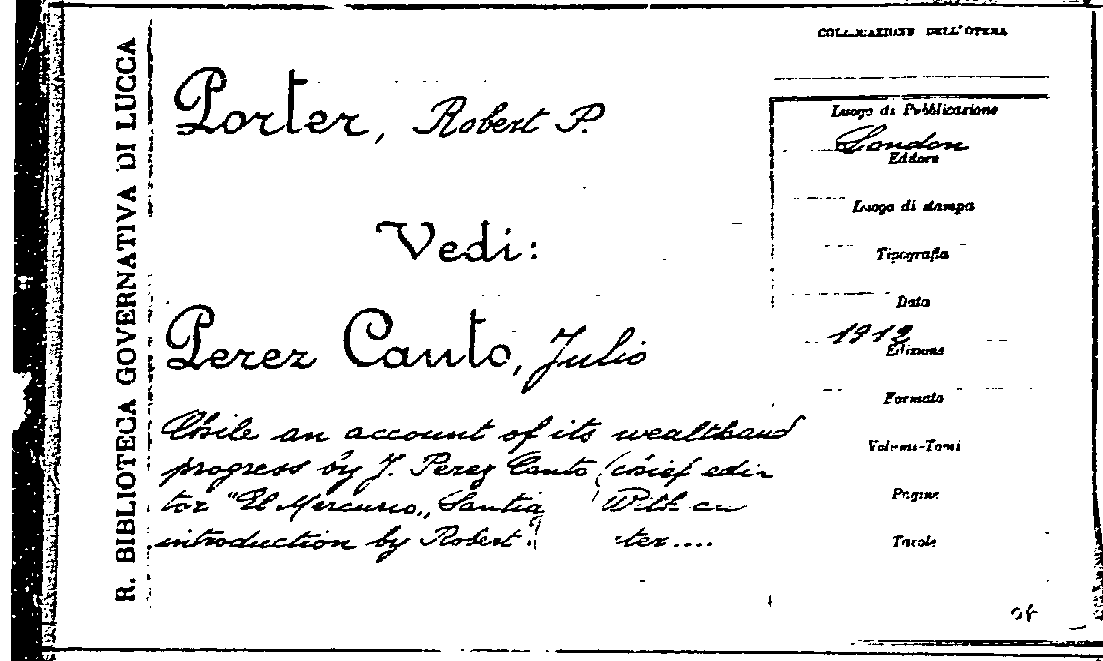 R. BIBLIOTECA GOVERNATIVA DI LUCCA
Porter, Robert P.
Vedi:
Perez Canto, Julio
Chile an account of its wealth and
progress by J. Perez Canto (chief edi
tor "El Mercurio„ Santia With an
introduction by Robert ter....
COLLOCAZIONE DELL'OPERA
Luogo di Pubblicazione
London
Editore
Luogo di stampa
Tipografia
Data
1912
Edizione
Formato
Volumi-Tomi
Pagine
Tavole